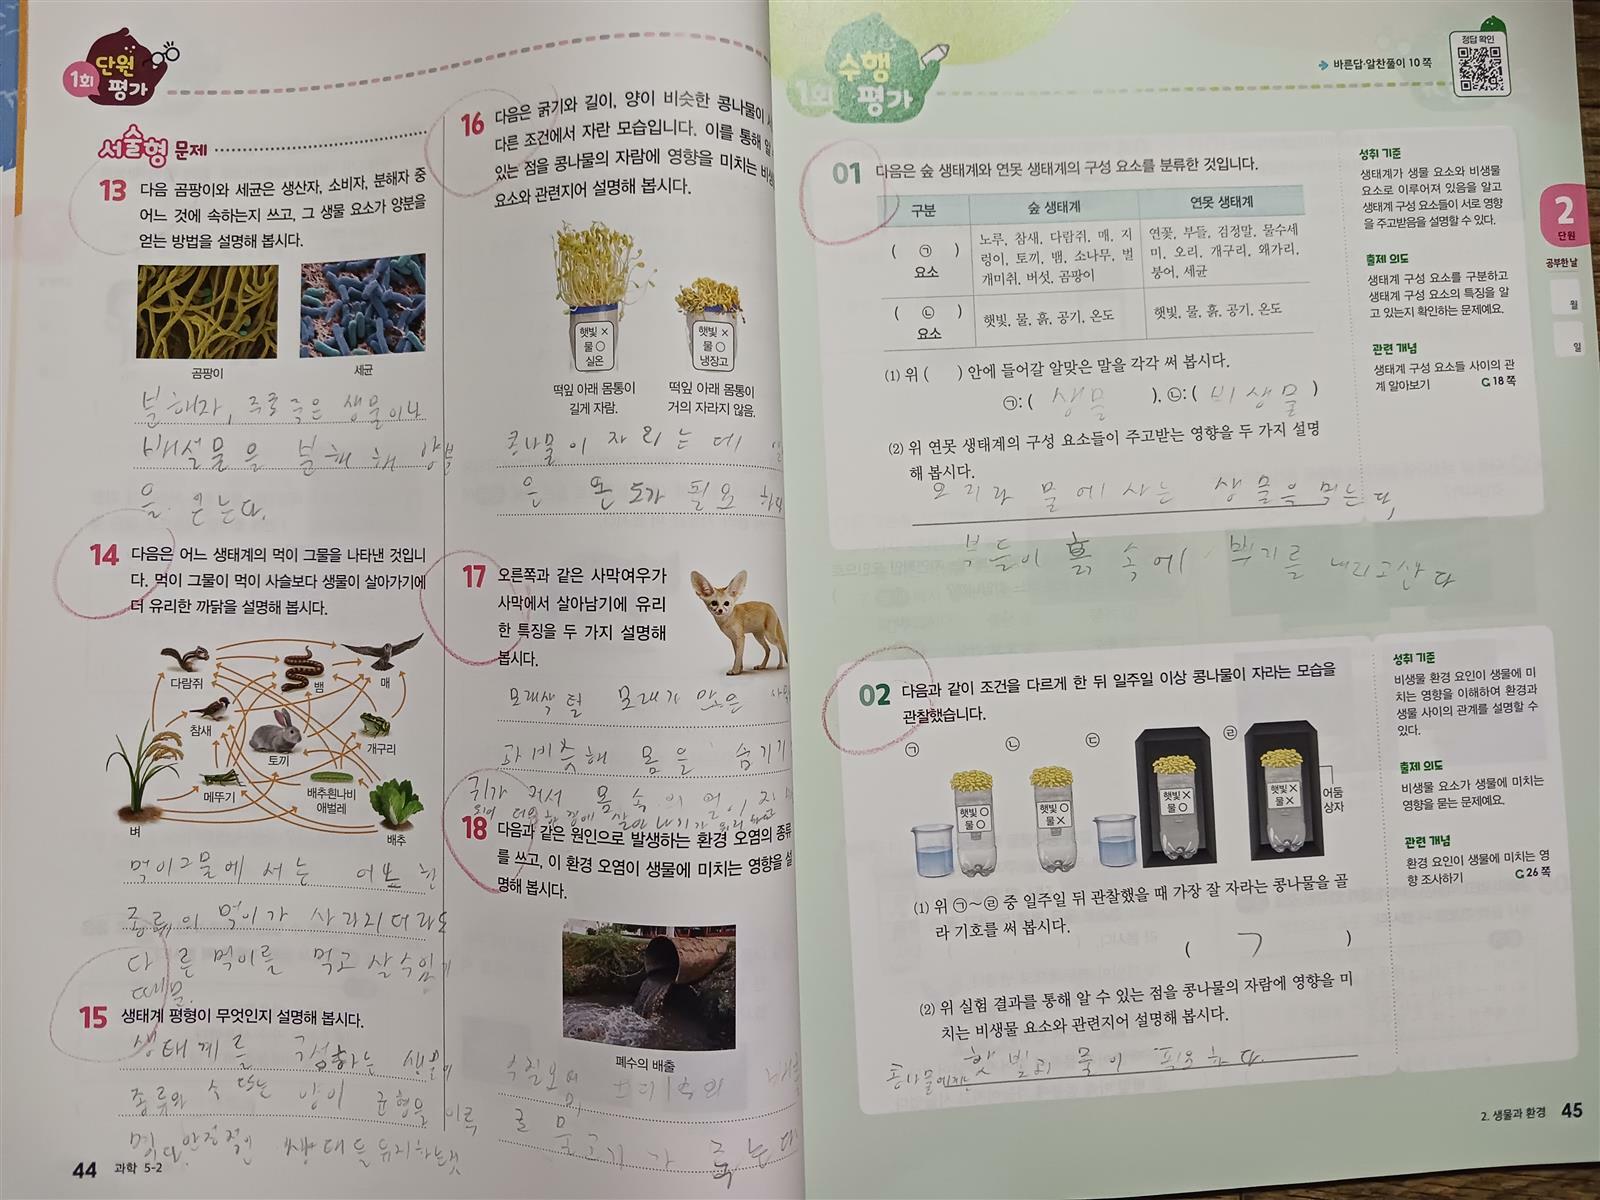 1회
단원
평가
서술형 문제
13 다음 곰팡이와 세균은 생산자, 소비자, 분해자 중
어느 것에 속하는지 쓰고, 그 생물 요소가 양분을
얻는 방법을 설명해 봅시다.
곰팡이
세균
분해자, 주로 죽은 생물이나
배설물을 분해해 양분
을 얻는다.
14 다음은 어느 생태계의 먹이 그물을 나타낸 것입니
다. 먹이 그물이 먹이 사슬보다 생물이 살아가기에
더 유리한 까닭을 설명해 봅시다.
다람쥐
뱀
매
참새
토끼
개구리
메뚜기
배추흰나비
애벌레
벼
배추
먹이그물에서는 어느 한
종류의 먹이가 사라지더라도
다른 먹이를 먹고 살수있기
때문.
15 생태계 평형이 무엇인지 설명해 봅시다.
생태계를 구성하는 생물의
종류와 수 또는 양이 균형을 이루
며 안정적인 생태를유지하는것
44 과학 5-2
16 다음은 굵기와 길이, 양이 비슷한 콩나물이
다른 조건에서 자란 모습입니다. 이를 통해 알
있는 점을 콩나물의 자람에 영향을 미치는 비생
요소와 관련지어 설명해 봅시다.
햇빛 ×
물 ○
실온
햇빛 ×
물 ○
냉장고
떡잎 아래 몸통이
길게 자람.
떡잎 아래 몸통이
거의 자라지 않음.
콩나물이 자라는데 알
은 온도가 필요하다
17 오른쪽과 같은 사막여우가
사막에서 살아남기에 유리
한 특징을 두 가지 설명해
봅시다.
모래색 털 모래가 많은 사막
과 비슷해 몸을 숨기기
귀가 커서 몸 속의 열이 잘
되어 더운 환경에 살아 나기가 유리하다
18 다음과 같은 원인으로 발생하는 환경 오염의 종류
를 쓰고, 이 환경 오염이 생물에 미치는 영향을 설
명해 봅시다.
폐수의 배출
수질오염, 더러워
물고기가 죽는다
1회
수행
평가
바른답·알찬풀이 10 쪽
정답 확인
01 다음은 숲 생태계와 연못 생태계의 구성 요소를 분류한 것입니다.
구분 숲 생태계 연못 생태계
( ㉠ )
요소
노루, 참새, 다람쥐, 매, 지
렁이, 토끼, 뱀, 소나무, 벌
개미취, 버섯, 곰팡이
연꽃, 부들, 검정말, 물수세
미, 오리, 개구리, 왜가리,
붕어, 세균
( ㉡ )
요소
햇빛, 물, 흙, 공기, 온도
햇빛, 물, 흙, 공기, 온도
(1) 위 ( ) 안에 들어갈 알맞은 말을 각각 써 봅시다.
㉠: ( 생물 ), ㉡: ( 비생물 )
(2) 위 연못 생태계의 구성 요소들이 주고받는 영향을 두 가지 설명
해 봅시다.
오리라 물에 사는 생물은 먹는다,
부들이 흙 속에 뿌리를 내리고산다
성취 기준
생태계가 생물 요소와 비생물
요소로 이루어져 있음을 알고
생태계 구성 요소들이 서로 영향
을 주고받음을 설명할 수 있다.
출제 의도
생태계 구성 요소를 구분하고
생태계 구성 요소의 특징을 알
고 있는지 확인하는 문제예요.
관련 개념
생태계 구성 요소들 사이의 관
계 알아보기 18 쪽
2
단원
공부한 날
월
일
02 다음과 같이 조건을 다르게 한 뒤 일주일 이상 콩나물이 자라는 모습을
관찰했습니다.
㉠ ㉡ ㉢ ㉣
햇빛 ○
물 ○
햇빛 ○
물 ×
햇빛 ×
물 ○
햇빛 ×
물 ×
어둠
상자
(1) 위 ㉠~㉣ 중 일주일 뒤 관찰했을 때 가장 잘 자라는 콩나물을 골
라 기호를 써 봅시다.
( ㄱ )
(2) 위 실험 결과를 통해 알 수 있는 점을 콩나물의 자람에 영향을 미
치는 비생물 요소와 관련지어 설명해 봅시다.
콩나물에게는 햇빛과 물이 필요하다
성취 기준
비생물 환경 요인이 생물에 미
치는 영향을 이해하여 환경과
생물 사이의 관계를 설명할 수
있다.
출제 의도
비생물 요소가 생물에 미치는
영향을 묻는 문제예요.
관련 개념
환경 요인이 생물에 미치는 영
향 조사하기 26 쪽
2. 생물과 환경 45